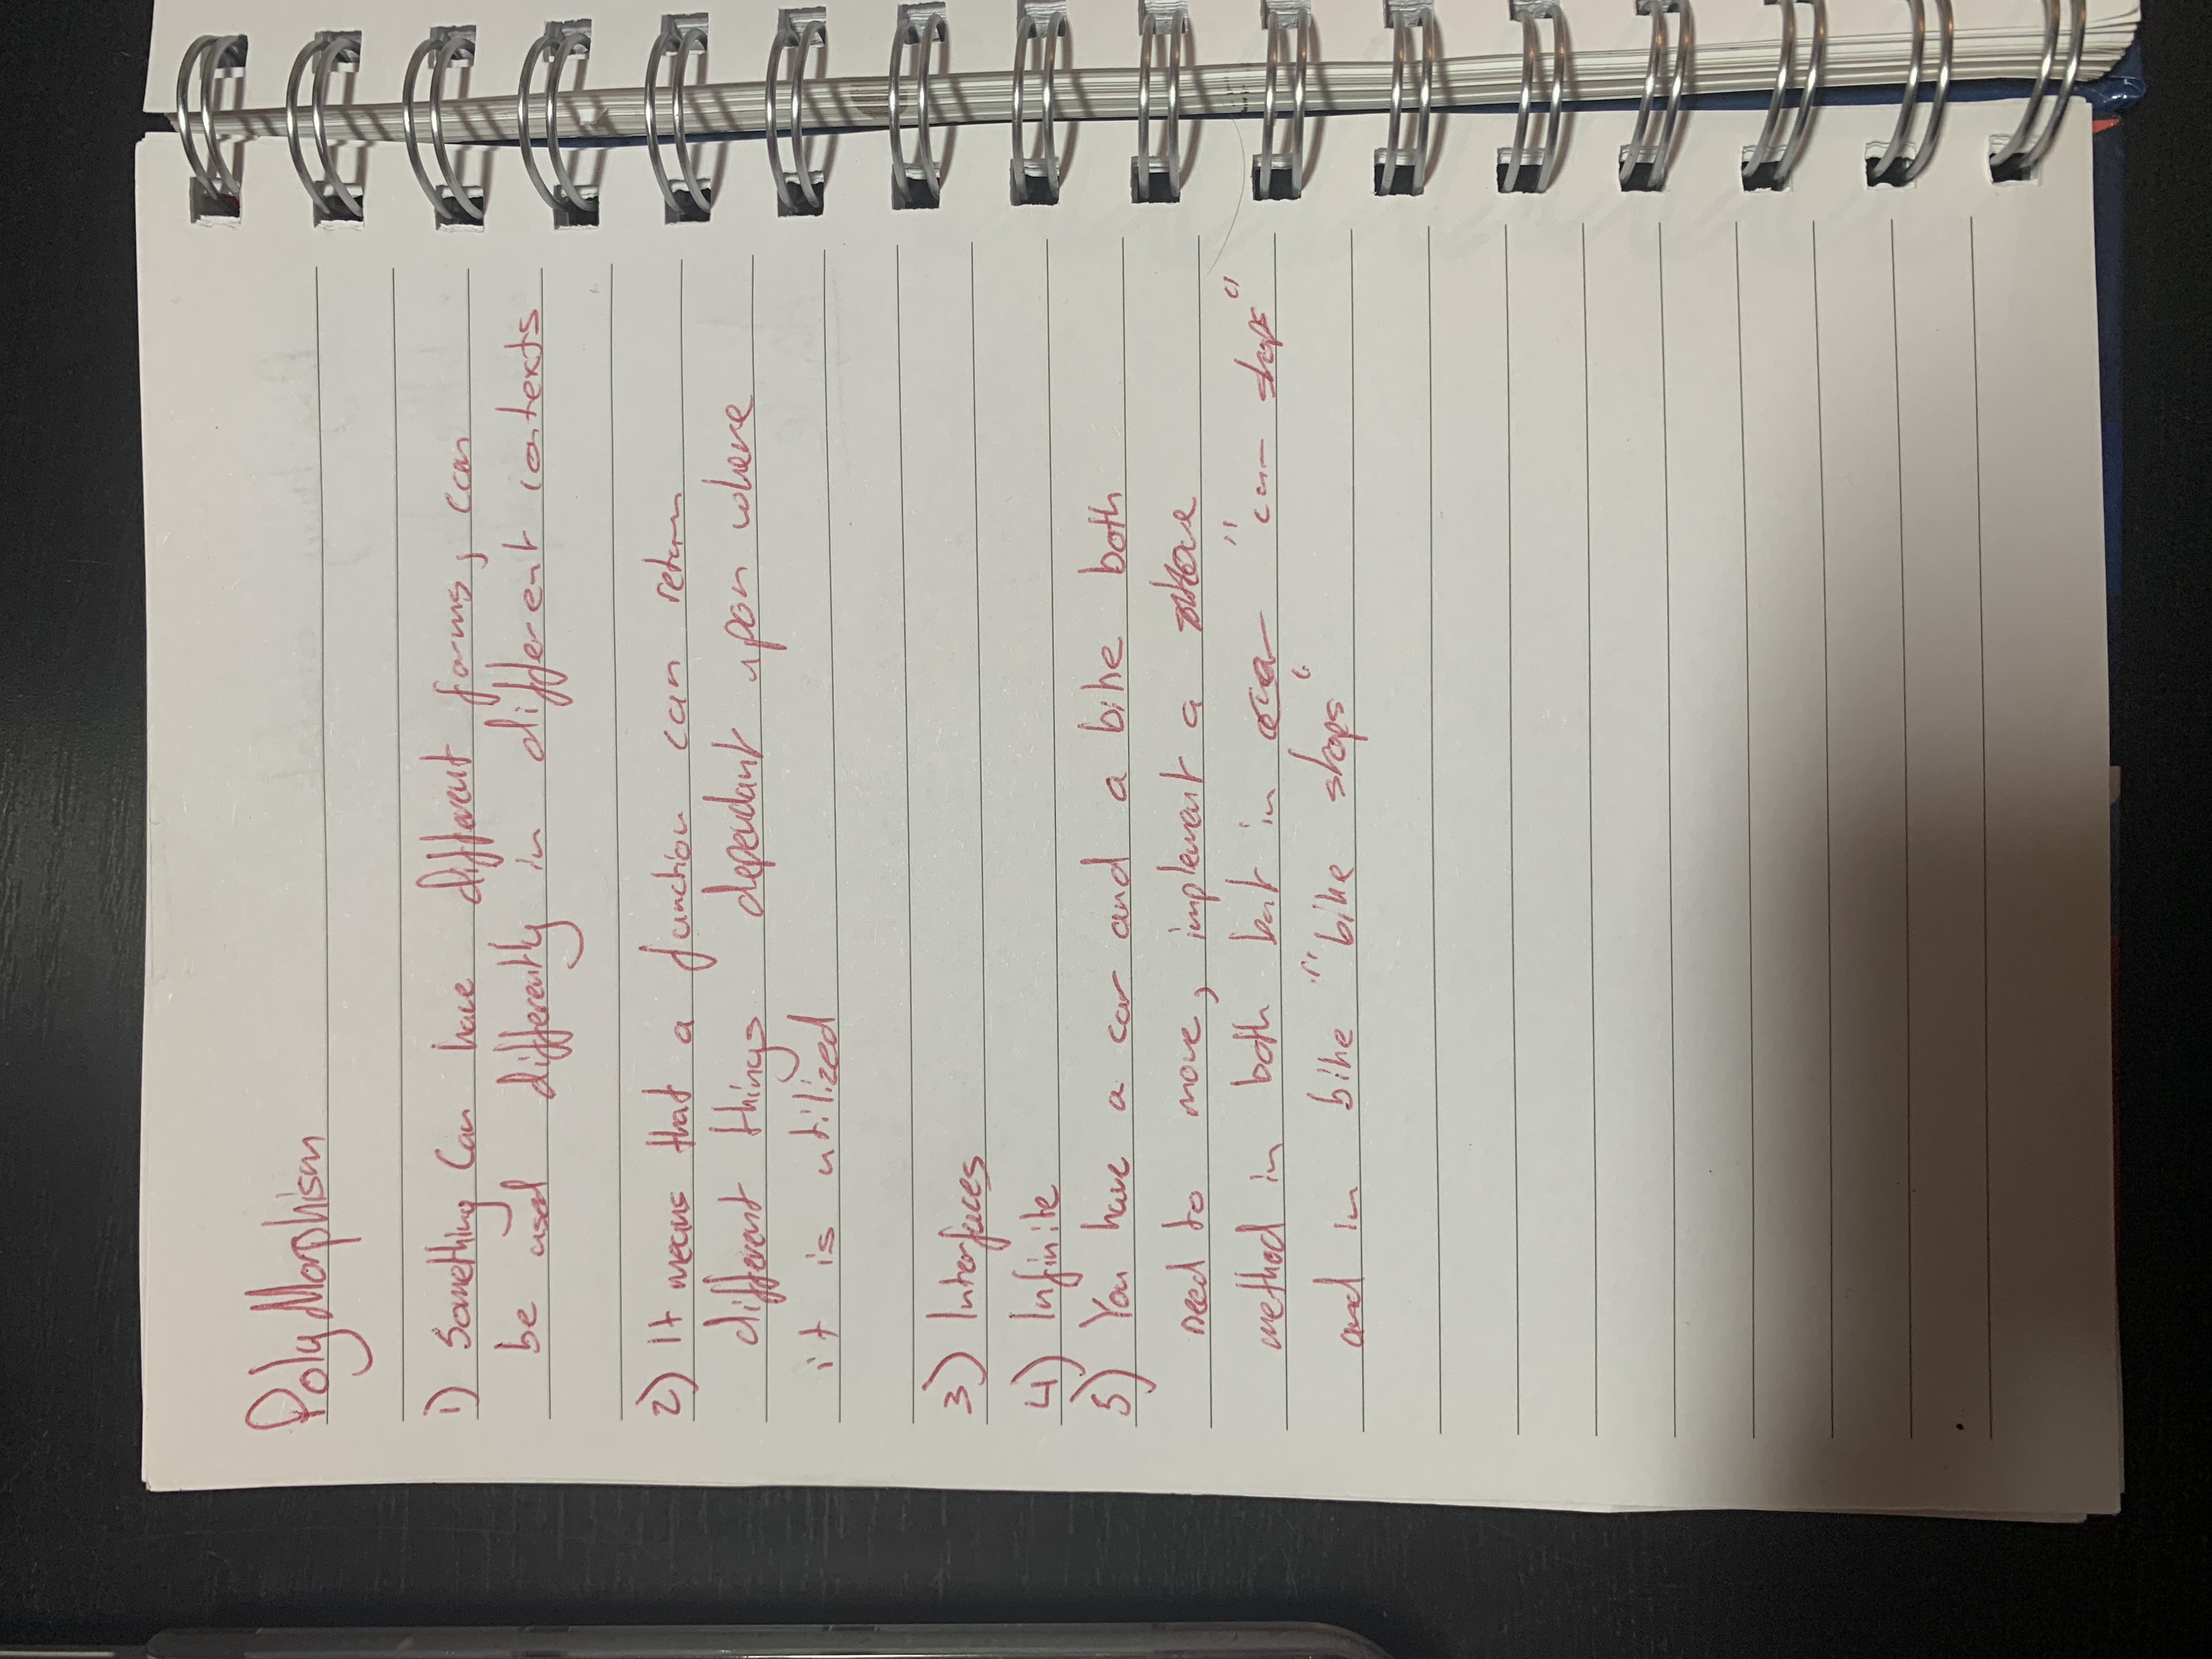 PolyMorphism
1) Something Can have different forms, can
be used differently in different contexts
2) It means that a function can return
different things dependant upon where
it is utilized
3) Interfaces
4) Infinite
5) You have a car and a bike both
need to move, implement a
method in both but in "car stops"
and in bike "bike stops"